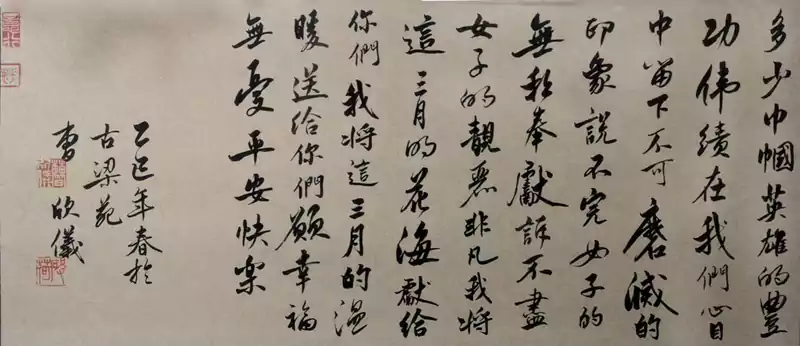 多少巾帼英雄的豐
功偉績在我們心目
中留下不可磨滅的
印象說不完女子的
無私奉獻訴不盡
女子的靚麗非凡我將
這三月的花海獻給
你們我将這三月的温
暖送给你們願幸福
無憂平安快樂
乙巳年春於
古梁苑
曹欣儀